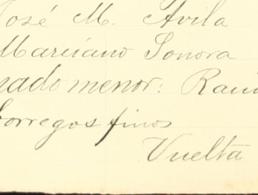 José M. Avila
Marciano Sonora
nado menor: Ram
borregos finos
Vuelta